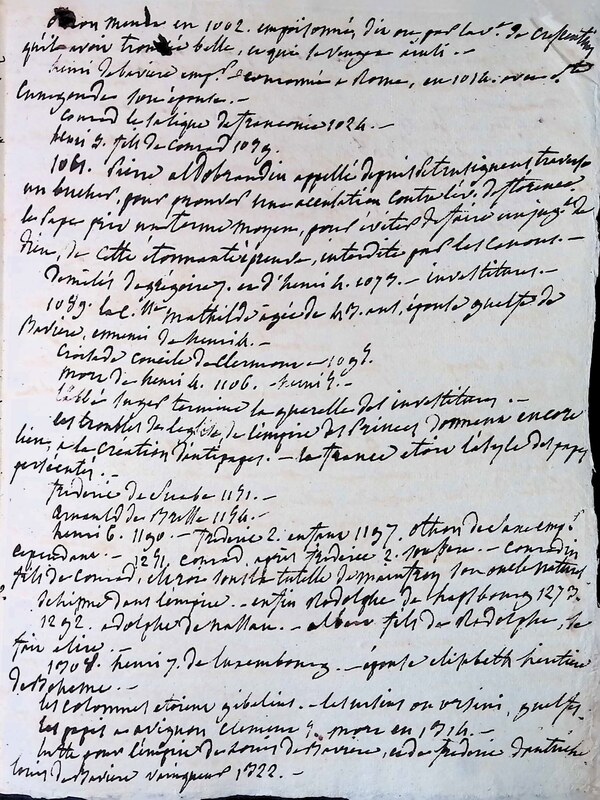 othon meurt en 1002. empoisonné, dit on, par la v.e de Crescentius
qu'il avoit trouvée belle, ce qui le vengea ainsi. —
henri de baviere emp.r couronné a Rome, en 1014. avec s.te
Cunegonde son épouse. —
Conrad le salique de franconie 1024. —
henri 3. fils de Conrad 1039.
1061. Pierre aldobrandin appellé depuis Petrus igneus traverse
un bucher, pour prouver une accusation contre l'év. de florence
le Pape prit un terme moyen, pour éviter de faire un jug.t de
dieu, de cette étonnante épreuve, interdite par les canons. —
démêlés de grégoire 7. et d'henri 4. 1073. — investitures. —
1089. la C.sse Mathilde agée de 43. ans, épouse guelfe de
Baviere, ennemi de henri 4. —
Croisade concile de Clermont — 1095. —
mort de henri 4. 1106. — henri 5. —
l'abbé Suger termine la querelle des investitures. —
les troubles de l'eglise, de l'empire des Princes donnent encore
lieu, a la création d'antipapes. — la france etoit l'asyle des papes
persécutés. —
frédéric de Suabe 1151. —
Arnauld de Bresse 1154. —
henri 6. 1190. — frédéric 2. enfant 1197. Othon de Saxe emp.r
cependant. — 1251. conrad, après frédéric 2. son père. — Conradin
fils de Conrad, eleve sous la tutelle de mainfroy son oncle naturel
schisme dans l'empire. — enfin Rodolphe de hapsbourg 1273.
1292. adolphe de nassau. — albert fils de Rodolphe, se
fait elire. —
1308. henri 7. de luxembourg. — épouse elisabeth heritiere
de Boheme. —
les colonnes etoient gibelins. — les ursins ou orsini, guelfes.
les papes a avignon Clement 5. mort en 1314. —
lutte pour l'empire de Louis de Baviere, et de frédéric d'autriche
louis de Baviere vainqueur 1322. —